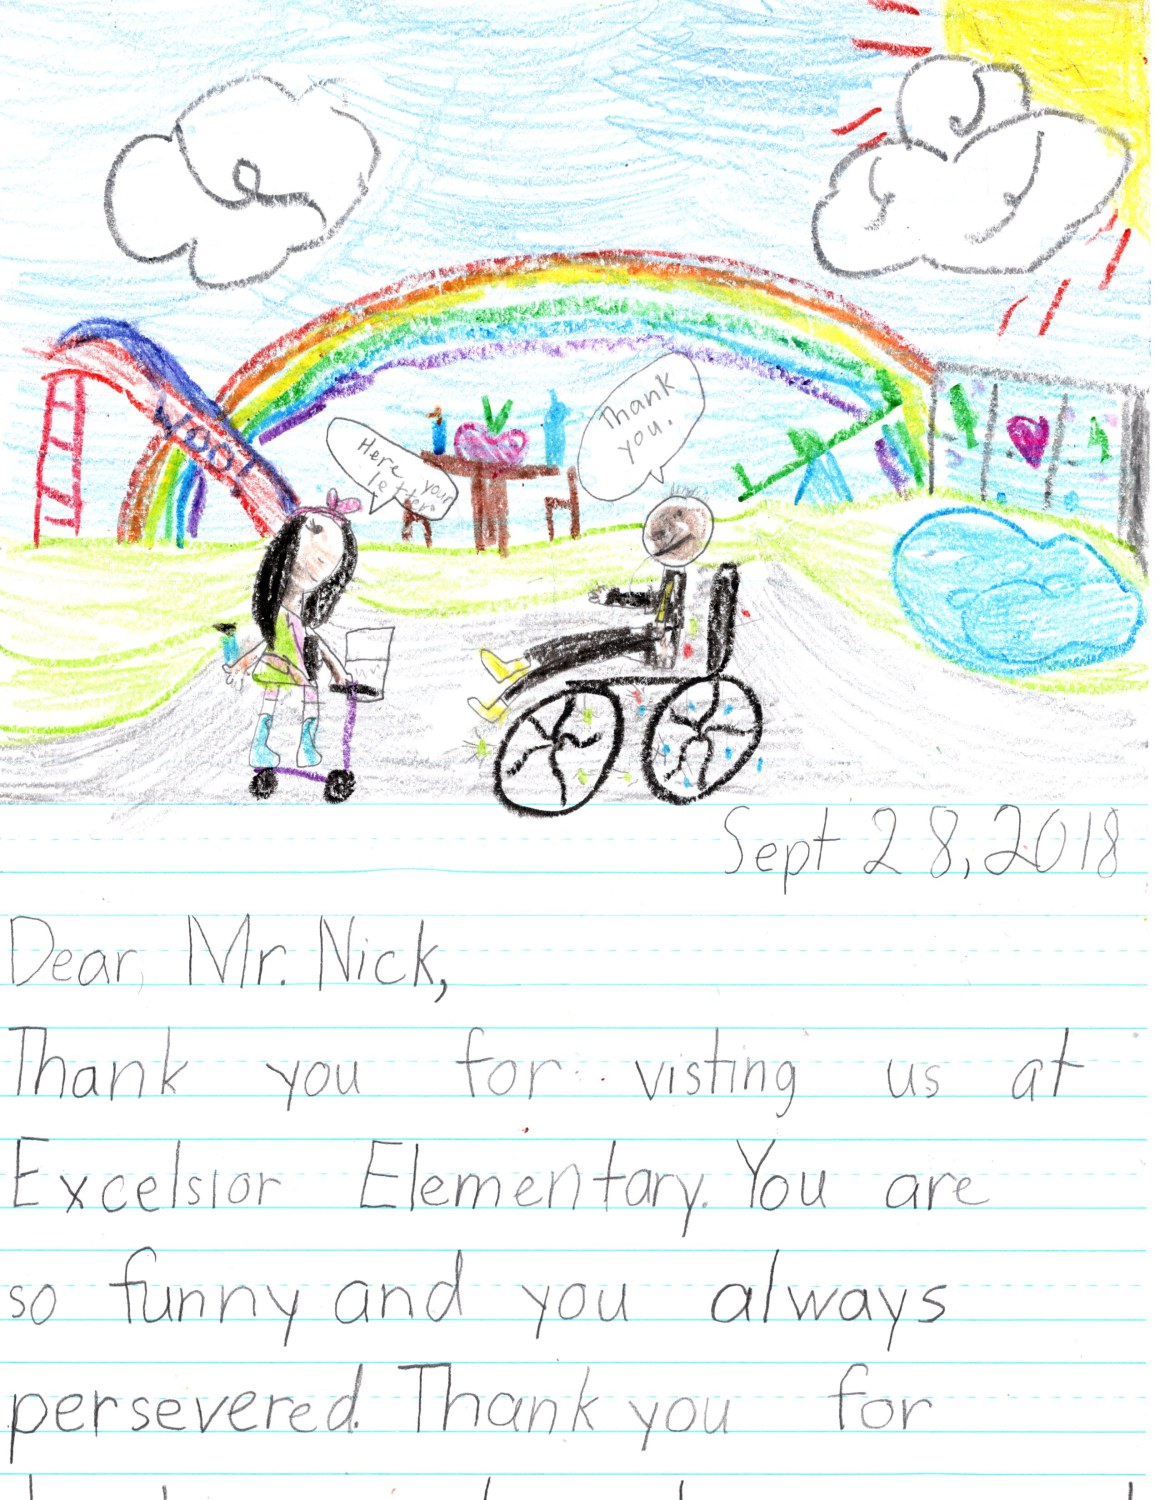 WOO!
Here your
letter.
Thank
you.
Sept 28, 2018
Dear, Mr. Nick,
Thank you for visting us at
Excelsior Elementary. You are
so funny and you always
persevered. Thank you for